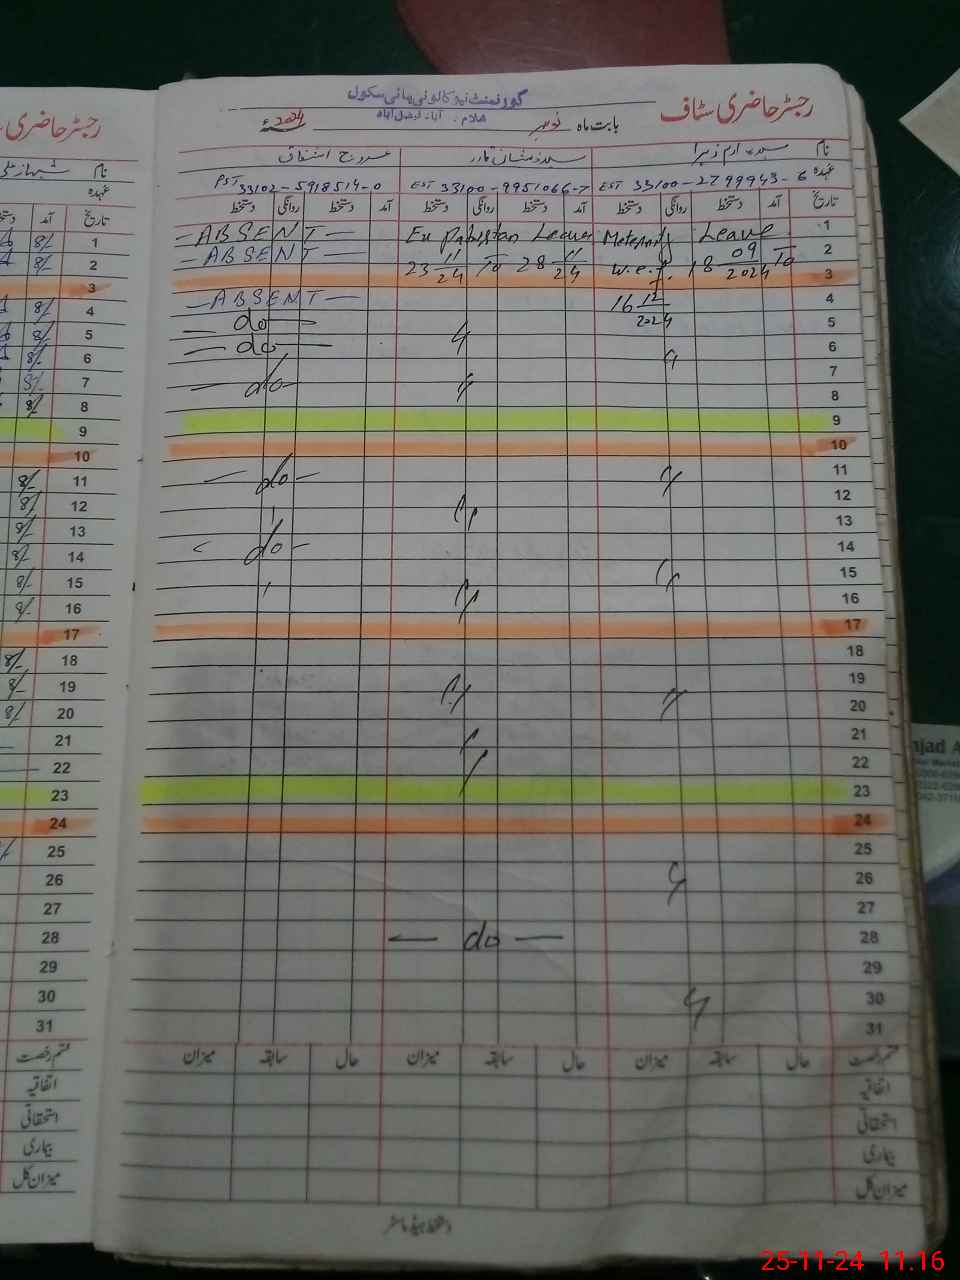 رجسٹر حاضری سٹاف
گورنمنٹ نیو کالونی ہائی سکول
غلام آباد فیصل آباد
بابت ماہ نومبر 2024ء
نام
عہدہ
EST 33100-2799943-6
EST 33100-9951066-7
PST 33102-5918514-0
تاریخ آمد دستخط روانگی دستخط آمد دستخط روانگی دستخط آمد دستخط روانگی دستخط
1 Meternity Leave Ex Pakistan Leave —ABSENT—
2 w.e.f. 18 09 2024 To 23 11 24 To 28 11 24 —ABSENT—
3
4 16 12 2024 —ABSENT—
5 — do —
6 — do —
7 — do —
8
9
10
11 — do —
12
13
14 — do —
15
16
17
18
19
20
21
22
23
24
25
26
27
28 — do —
29
30
31
قسم رخصت حال سابقہ میزان حال سابقہ میزان حال سابقہ میزان
اتفاقیہ
استحقاقی
بیماری
میزان کل
دستخط ہیڈ ماسٹر
رجسٹر حاضری س
نام
عہدہ
تاریخ آمد
1
2
3
4
5
6
7
8
9
10
11
12
13
14
15
16
17
18
19
20
21
22
23
24
25
26
27
28
29
30
31
قسم رخصت
اتفاقیہ
استحقاقی
بیماری
میزان کل
njad A
25-11-24 11.16